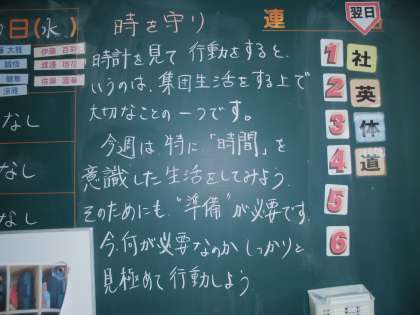 日(水)
時を守り
連
翌日
時計を見て行動をすると
いうのは、集団生活をする上で
大切なことの一つです。
今週は特に「時間」を
意識した生活をしてみよう.
そのためにも"準備"が必要です.
今、何が必要なのかしっかりと
見極めて行動しよう
なし
なし
なし
1 社
2 英
3 体
4 道
5
6